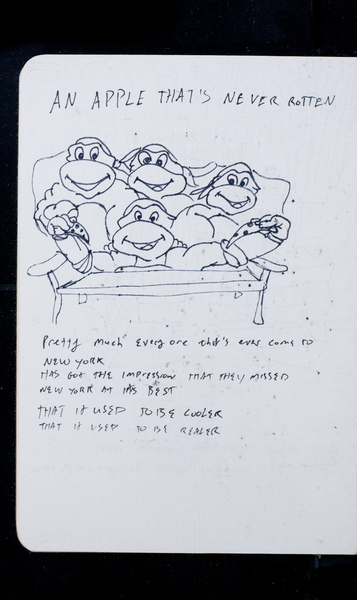 AN APPLE THAT'S NEVER ROTTEN
Pretty much every one that's ever come to
NEW YORK
HAS GOT THE IMPRESSION THAT THEY MISSED
NEW YORK AT ITS BEST
THAT IT USED TO BE COOLER
THAT IT USED TO BE REALER